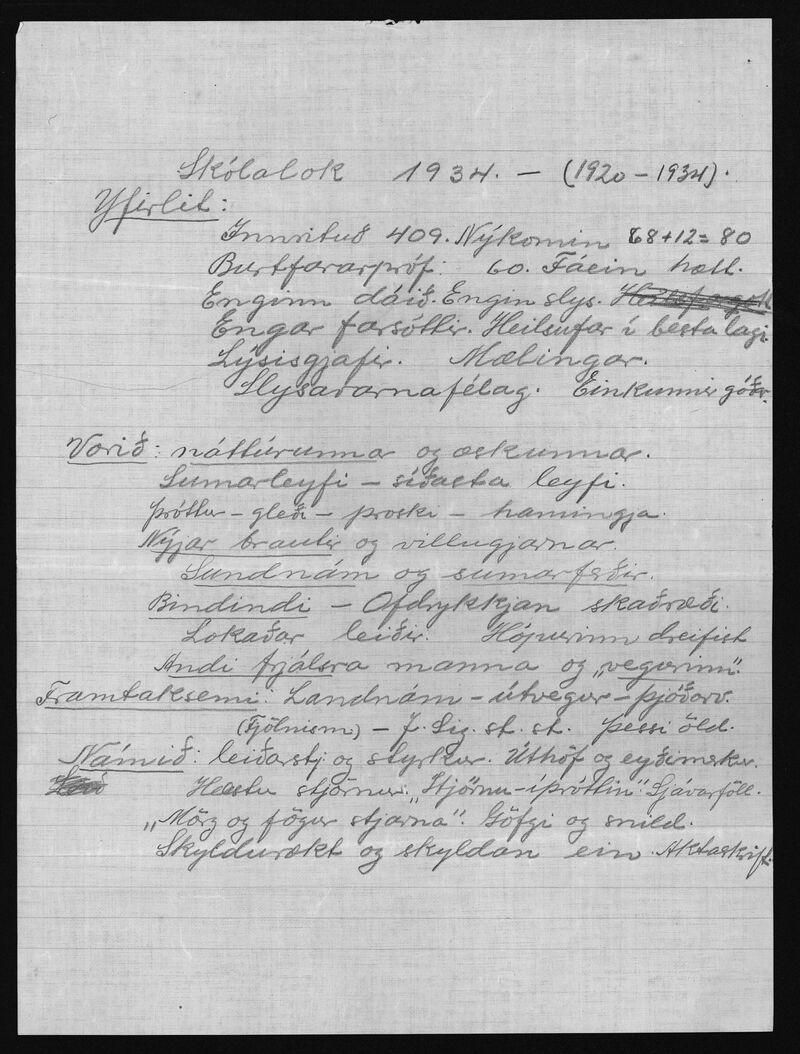 Skólalok 1934. — (1920 – 1934).
Yfirlit:
Innrituð 409. Nýkomin 68+12=80
Burtfararpróf: 60. Fáein hætt.
Enginn dáið. Engin slys.
Engar farsóttir. Heilsufar í besta lagi.
Lýsisgjafir. Mælingar.
Slysavarnafélag. Einkunnir góðar.
Vorið: náttúrunnar og æskunnar.
Sumarleyfi – síðasta leyfi.
Þróttur – gleði – þroski – hamingja.
Nýjar brautir og villugjarnar.
Sundnám og sumarferðir.
Bindindi – Ofdrykkjan skaðræði.
Lokaðar leiðir. Hópurinn dreifist
Andi frjálsra manna og „vegurinn".
Framtaksemi: Landnám – útvegur – þjóðarv.
(Fjölnism) – J. Sig. st. st. Þessi öld.
Námið: leiðarstj og styrkur. Úthöf og eyðimerkur.
Hæstu stjörnur. „Stjörnu-íþróttin". Sjávarföll.
„Mörg og fögur stjarna". Göfgi og snild.
Skyldurækt og skyldan ein. Aktaskrift.